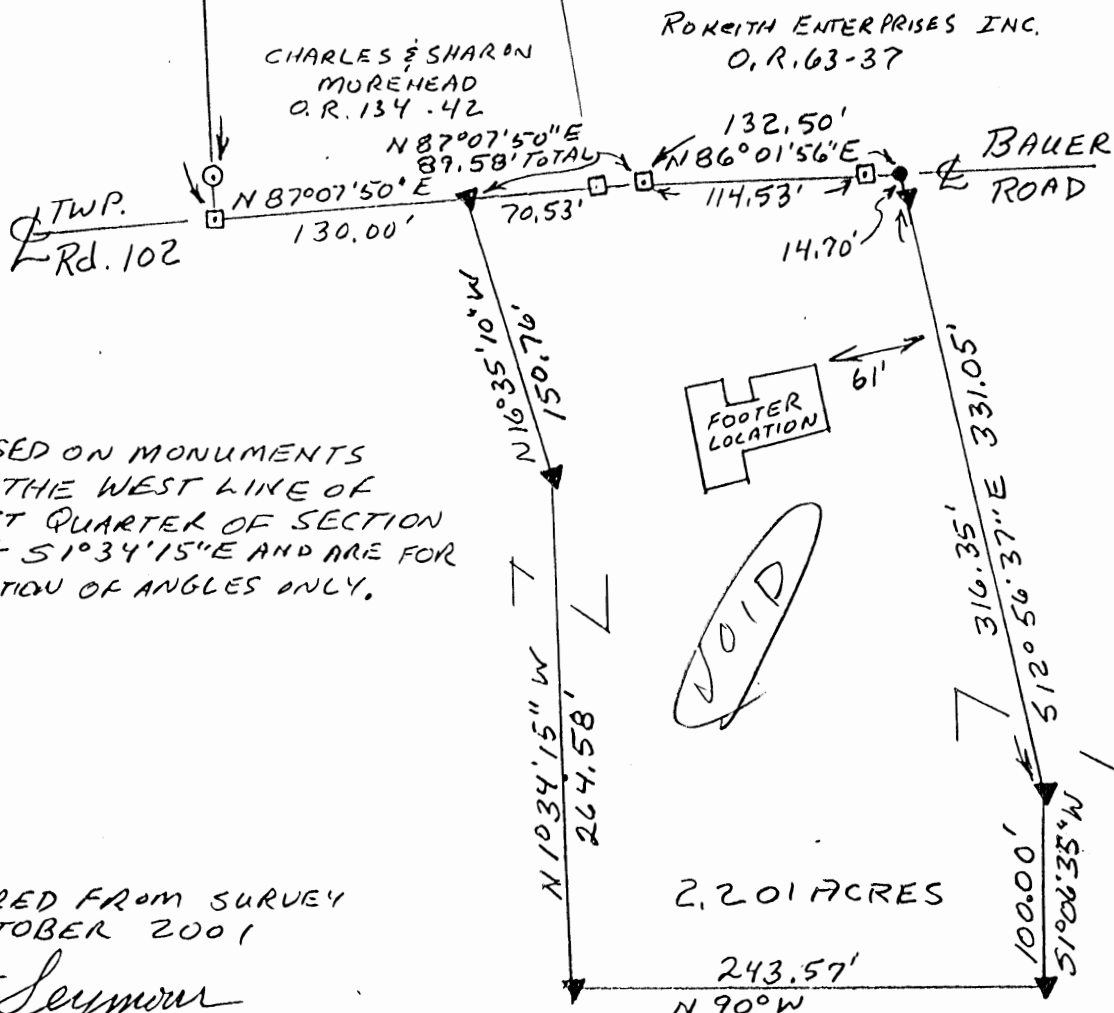 ROKEITH ENTERPRISES INC.
O.R. 63-37
CHARLES & SHARON
MOREHEAD
O.R. 134-42
N 87°07'50"E
89.58' TOTAL
132.50'
N 86°01'56"E
BAUER
ROAD
TWP.
Rd. 102
N 87°07'50"E
130.00'
70.53'
114.53'
14.70'
N 16°35'10"W
150.76'
61'
FOOTER
LOCATION
S 12°56'37"E 331.05'
316.35'
SED ON MONUMENTS
THE WEST LINE OF
T QUARTER OF SECTION
S 1°34'15"E AND ARE FOR
TION OF ANGLES ONLY.
VOID
N 1°34'15" W
264.58'
2.201 ACRES
100.00'
S1°06'35"W
RED FROM SURVEY
TOBER 2001
Seymour
243.57'
N 90° W